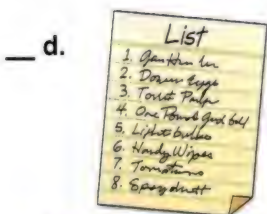 __ d.
List
1.
2. Dozen Eggs
3. Toilet Paper
4. One Pound
5. Lightbulbs
6. Handy Wipes
7. Tomatoes
8.